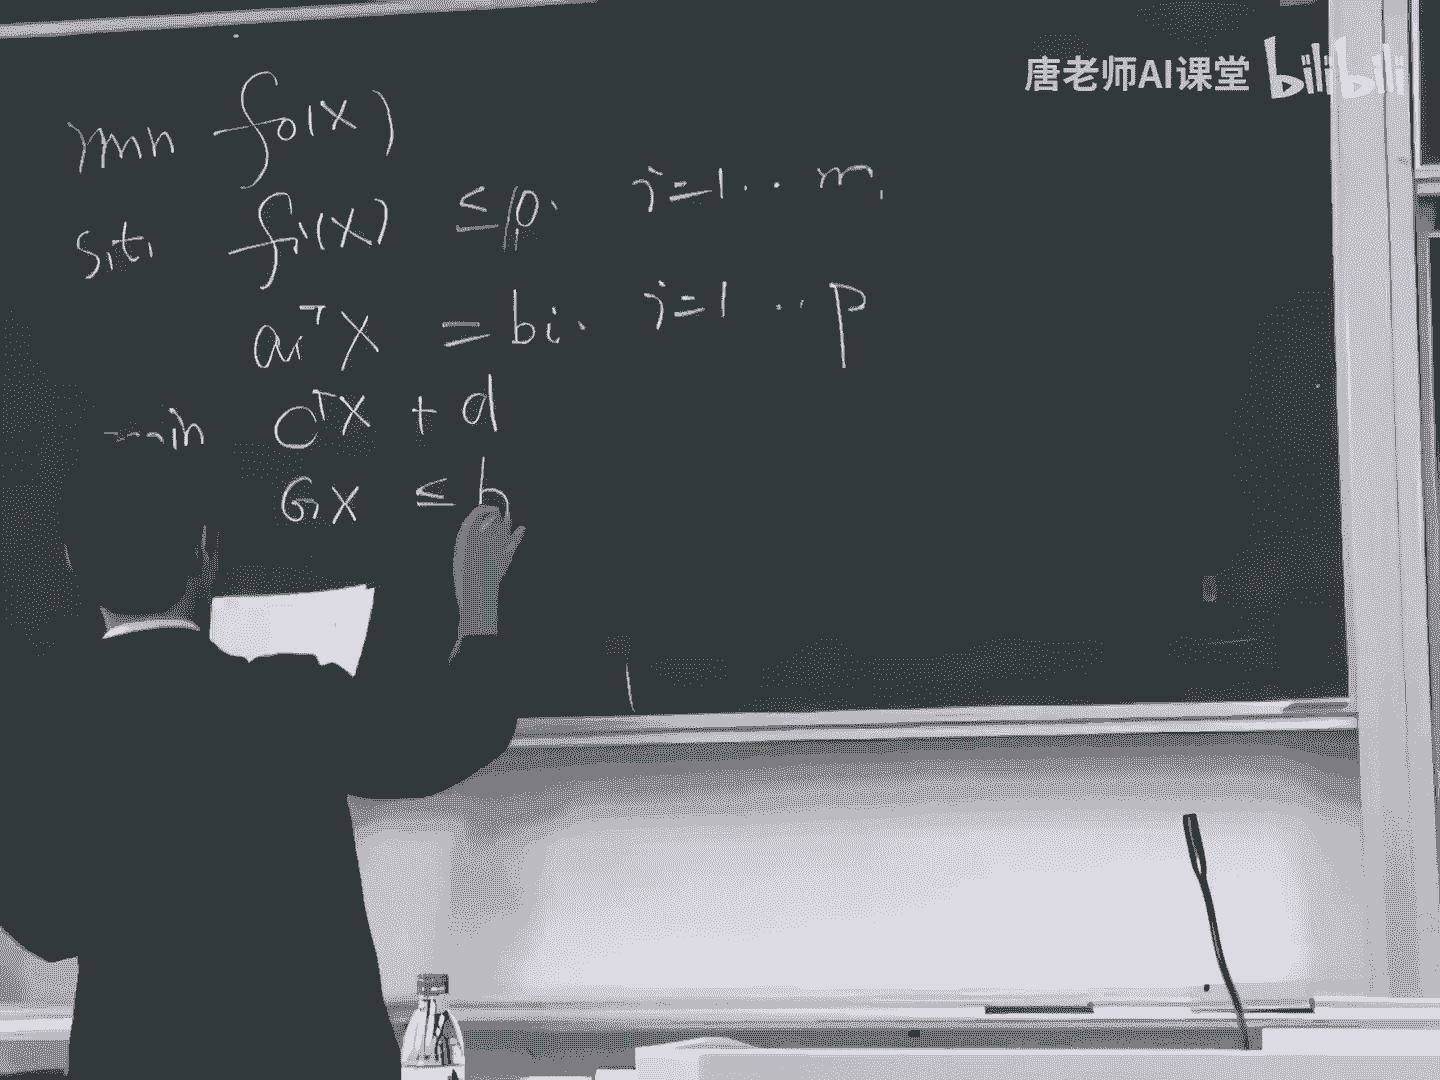 唐老师AI课堂 bilibili
min f₀(x)
s.t. fi(x) ≤ 0. i=1.. m.
aiᵀx = bi. i=1 .. p
min cᵀx + d
Gx ≤ h